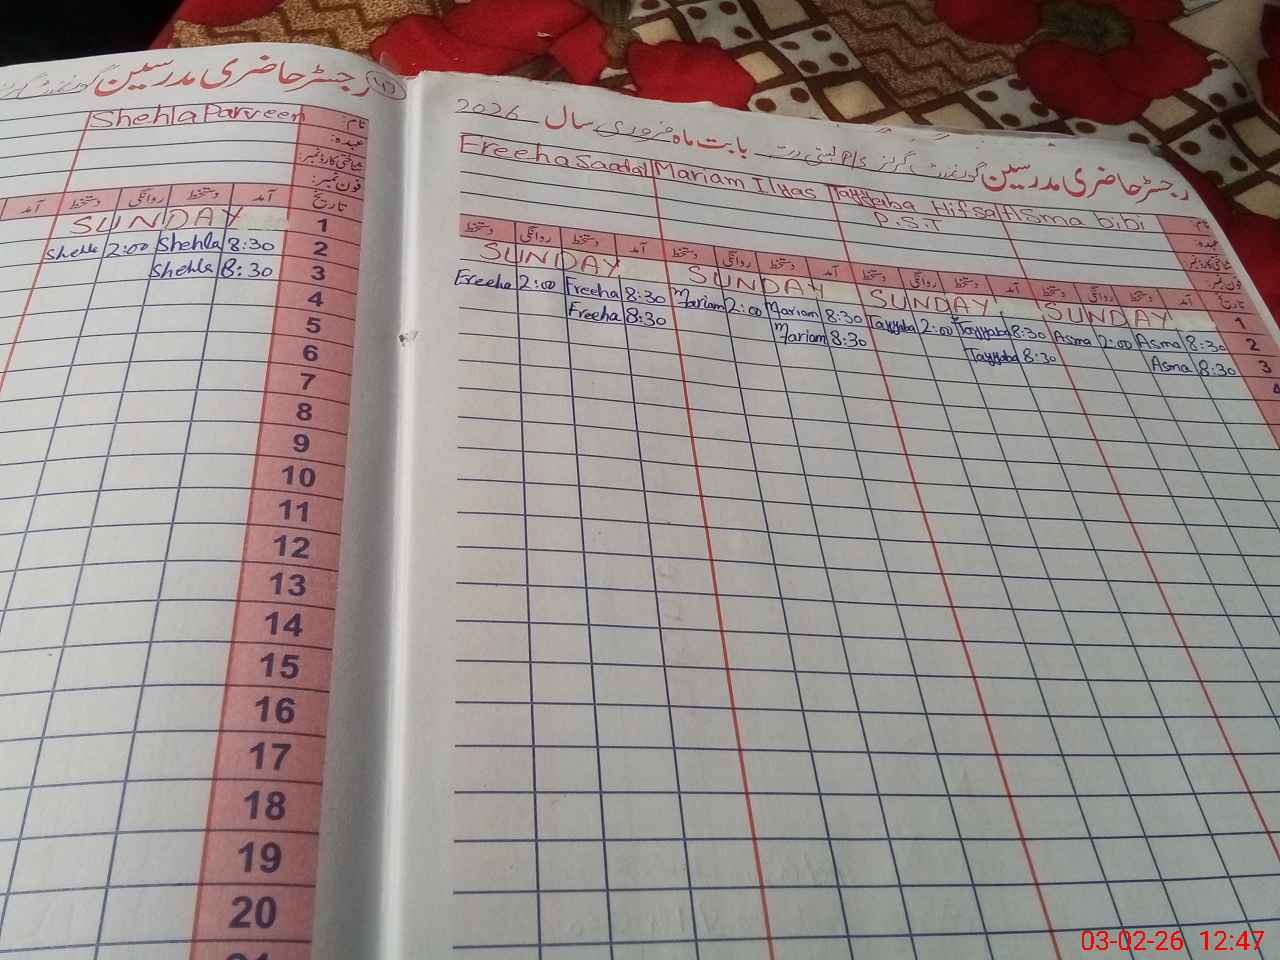 رجسٹر حاضری مدرسین
47
Shehla Parveen
نام:
عہدہ:
شناختی کارڈ نمبر:
فون نمبر:
آمد دستخط روانگی دستخط آمد تاریخ
SUNDAY 1
Shehla 2:00 Shehla 8:30 2
Shehla 8:30 3
4
5
6
7
8
9
10
11
12
13
14
15
16
17
18
19
20
21
رجسٹر حاضری مدرسین گورنمنٹ گرلز بابت ماہ فروری سال 2026
Freeha Saadat Mariam Ilyas Tayyaba Hifsa Asma bibi
P.S.T
نام:
عہدہ:
شناختی کارڈ نمبر:
فون نمبر:
تاریخ آمد دستخط روانگی دستخط آمد دستخط روانگی دستخط آمد دستخط روانگی دستخط آمد دستخط روانگی دستخط
SUNDAY SUNDAY SUNDAY SUNDAY 1
Freeha 2:00 Freeha 8:30 Mariam 2:00 Mariam 8:30 Tayyaba 2:00 Tayyaba 8:30 Asma 2:00 Asma 8:30 2
Freeha 8:30 Mariam 8:30 Tayyaba 8:30 Asma 8:30 3
4
03-02-26 12:47